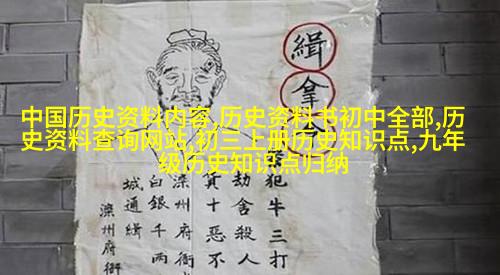 中国历史资料内容,历史资料书初中全部,历
史资料查询网站,初三上册历史知识点,九年
级历史知识点归纳
緝拿令
犯牛三打
劫舍殺人
十惡不
滦州府衙
白銀千兩
城通緝
滦州府衙